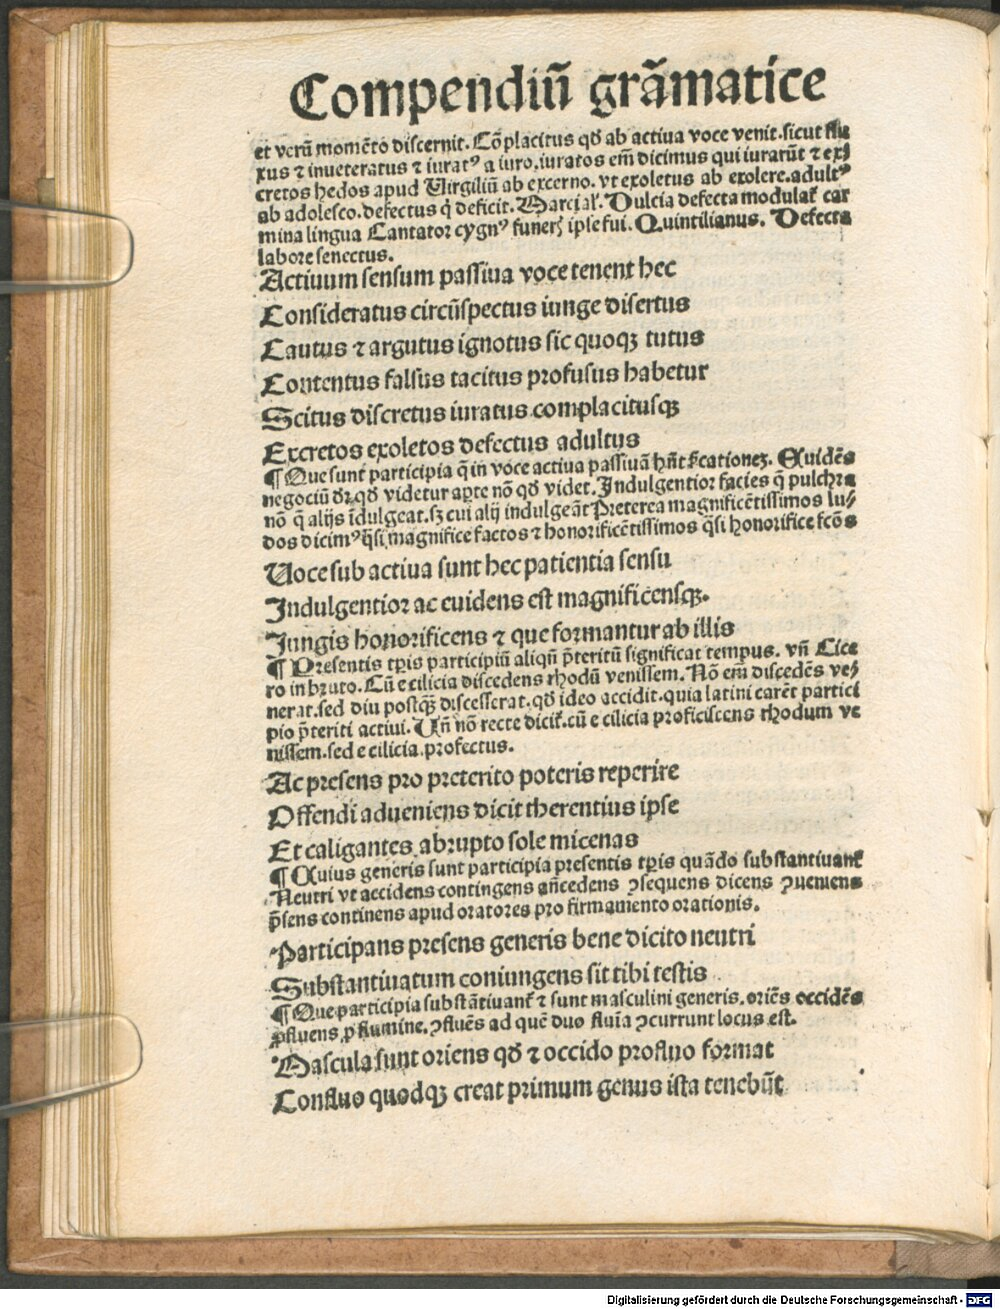 Compendiũ grãmatice
et verũ momẽto discernit. Cõplacitus qđ ab actiua voce venit. sicut flu
xus ⁊ inueteratus ⁊ iuratꝰ a iuro. iuratos em̃ dicimus qui iurarũt ⁊ ex⸗
cretos hedos apud Virgiliũ ab excerno. vt exoletus ab exolere. adultꝰ
ab adolesco. defectus q̇ deficit. Marcial̃. Dulcia defecta modulat̃ car
mina lingua Cantator cygnꝰ funerꝭ ipse fui. Quintilianus. Defecta
labore senectus.
Actiuum sensum passiua voce tenent hec
Consideratus circũspectus iunge disertus
Cautus ⁊ argutus ignotus sic quoqꝫ tutus
Contentus falsus tacitus profusus habetur
Scitus discretus iuratus complacitusqꝫ
Excretos exoletos defectus adultus
¶ Que sunt participia q̃ in voce actiua passiuã hñt s̃cationeꝫ. Euidẽs
negociũ dr̃. qđ videtur aꝑte nõ qđ videt. Indulgentior facies q̃ pulchra
nõ q̃ alijs ĩdulgeat. sꝫ cui alij indulgeãt Preterea magnificẽtissimos lu⸗
dos dicimꝰ q̃si magnifice factos ⁊ honorificẽtissimos q̃si honorifice fc̃os
Uoce sub actiua sunt hec patientia sensu
Indulgentior ac euidens est magnificensqꝫ.
Jungis honorificens ⁊ que formantur ab illis
¶ Presentis tꝑis participiũ aliqñ p̃teritũ significat tempus. vñ Cice
ro in bruto. Cũ e cilicia discedens rhodũ venissem. Nõ em̃ discedẽs ve⸗
nerat. sed diu postqꝫ discesserat. qđ ideo accidit. quia latini carẽt partici
pio p̃teriti actiui. Uñ nõ recte dicit̃. cũ e cilicia proficiscens rhodum ve
nissem. sed e cilicia profectus.
Ac presens pro preterito poteris reperire
Offendi adueniens dicit therentius ipse
Et caligantes abrupto sole micenas
¶ Cuius generis sunt participia presentis tꝑis quãdo substantiuant̃
Neutri vt accidens contingens añcedens ꝯsequens dicens ꝯueniens
p̃sens continens apud oratores pro firmamento orationis.
Participans presens generis bene dicito neutri
Substantiuatum coniungens sit tibi testis
¶ Que participia substãtiuant̃ ⁊ sunt masculini generis. oriẽs occidẽs
ꝓfluens ꝓ flumine. ꝯfluẽs ad quẽ duo fluuĩa ꝯcurrunt locus est.
Mascula sunt oriens qđ ⁊ occido profluo format
Confluo quodqꝫ creat primum genus ista tenebũt
Digitalisierung gefördert durch die Deutsche Forschungsgemeinschaft - DFG